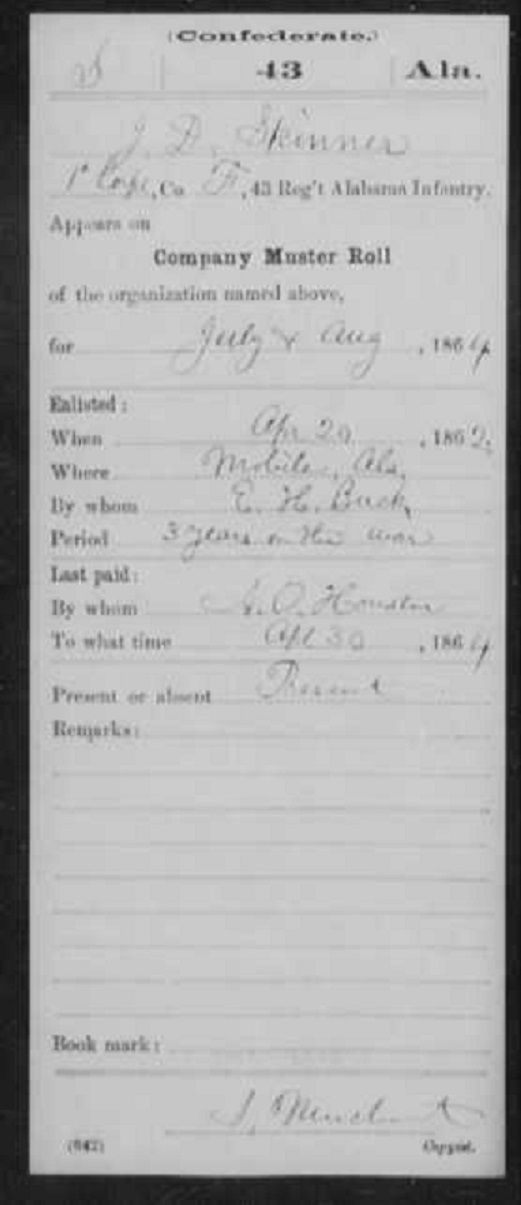 (Confederate.)
S | 43 | Ala.
J. D. Skinner
1' Corp, Co F, 43 Reg't Alabama Infantry.
Appears on
Company Muster Roll
of the organization named above,
for July & Aug, 1864
Enlisted:
When Apr 20, 1862.
Where Mobile, Ala.
By whom E. H. Buck
Period 3 years or the war
Last paid:
By whom A. O. Houston
To what time Apl 30, 1864
Present or absent Present
Remarks:
Book mark:
(642) Copyist.